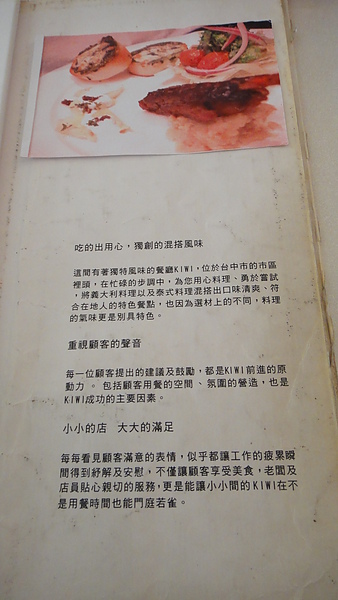 吃的出用心，獨創的混搭風味
這間有著獨特風味的餐廳KIWI，位於台中市的市區
裡頭，在忙碌的步調中，為您用心料理、勇於嘗試
，將義大利料理以及泰式料理混搭出口味清爽、符
合在地人的特色餐點，也因為選材上的不同，料理
的氣味更是別具特色。
重視顧客的聲音
每一位顧客提出的建議及鼓勵，都是KIWI前進的原
動力 。 包括顧客用餐的空間 、氛圍的營造，也是
KIWI成功的主要因素。
小小的店　大大的滿足
每每看見顧客滿意的表情，似乎都讓工作的疲累瞬
間得到紓解及安慰，不僅讓顧客享受美食，老闆及
店員貼心親切的服務，更是能讓小小間的KIWI在不
是用餐時間也能門庭若雀。